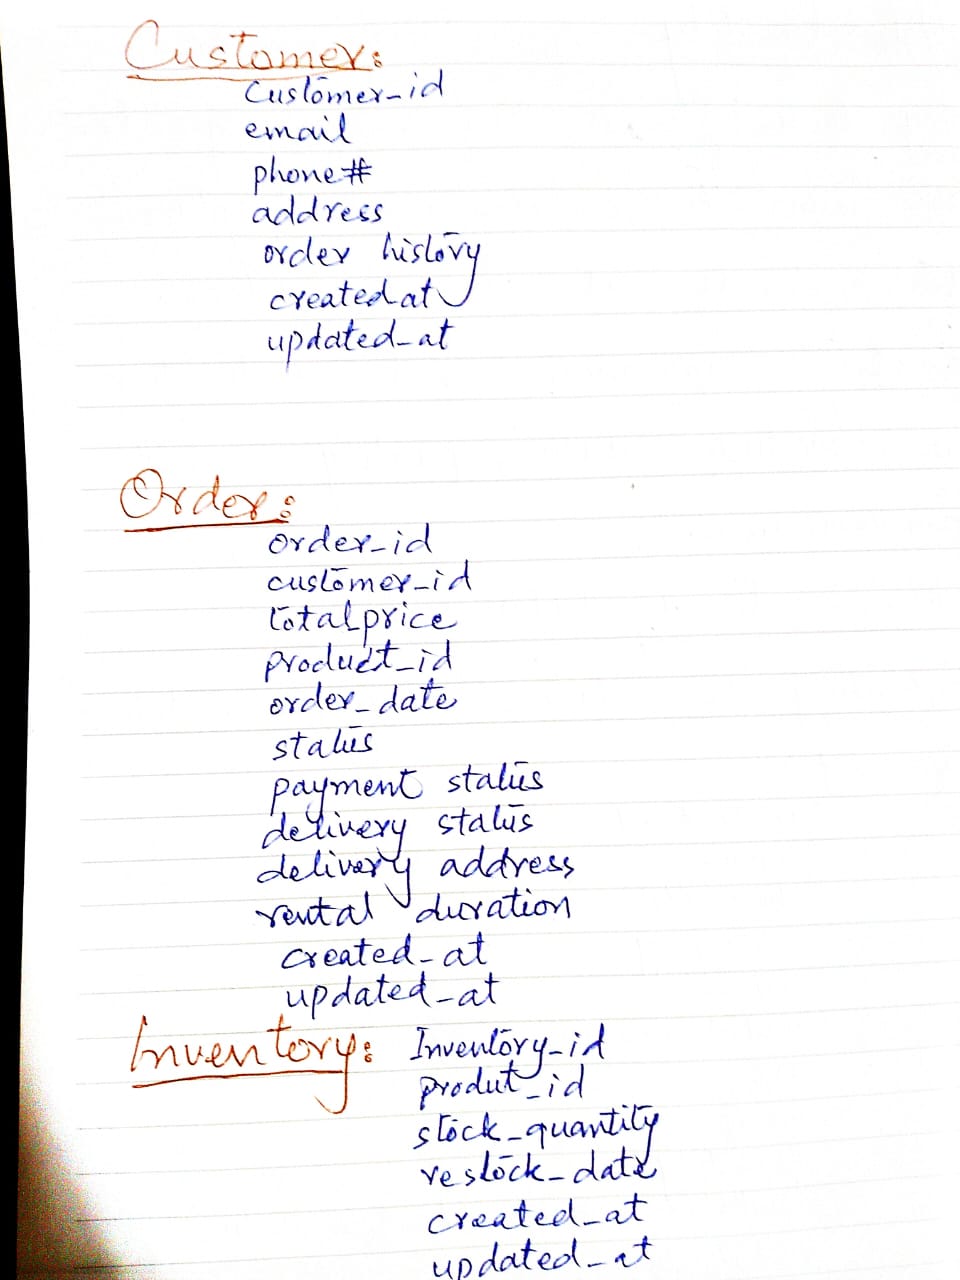 Customer:
Customer_id
email
phone#
address
order history
created_at
updated_at
Order:
order_id
customer_id
total_price
product_id
order_date
status
payment status
delivery status
delivery address
rental duration
created_at
updated_at
Inventory: Inventory_id
produt_id
stock_quantity
restock_date
created_at
updated_at